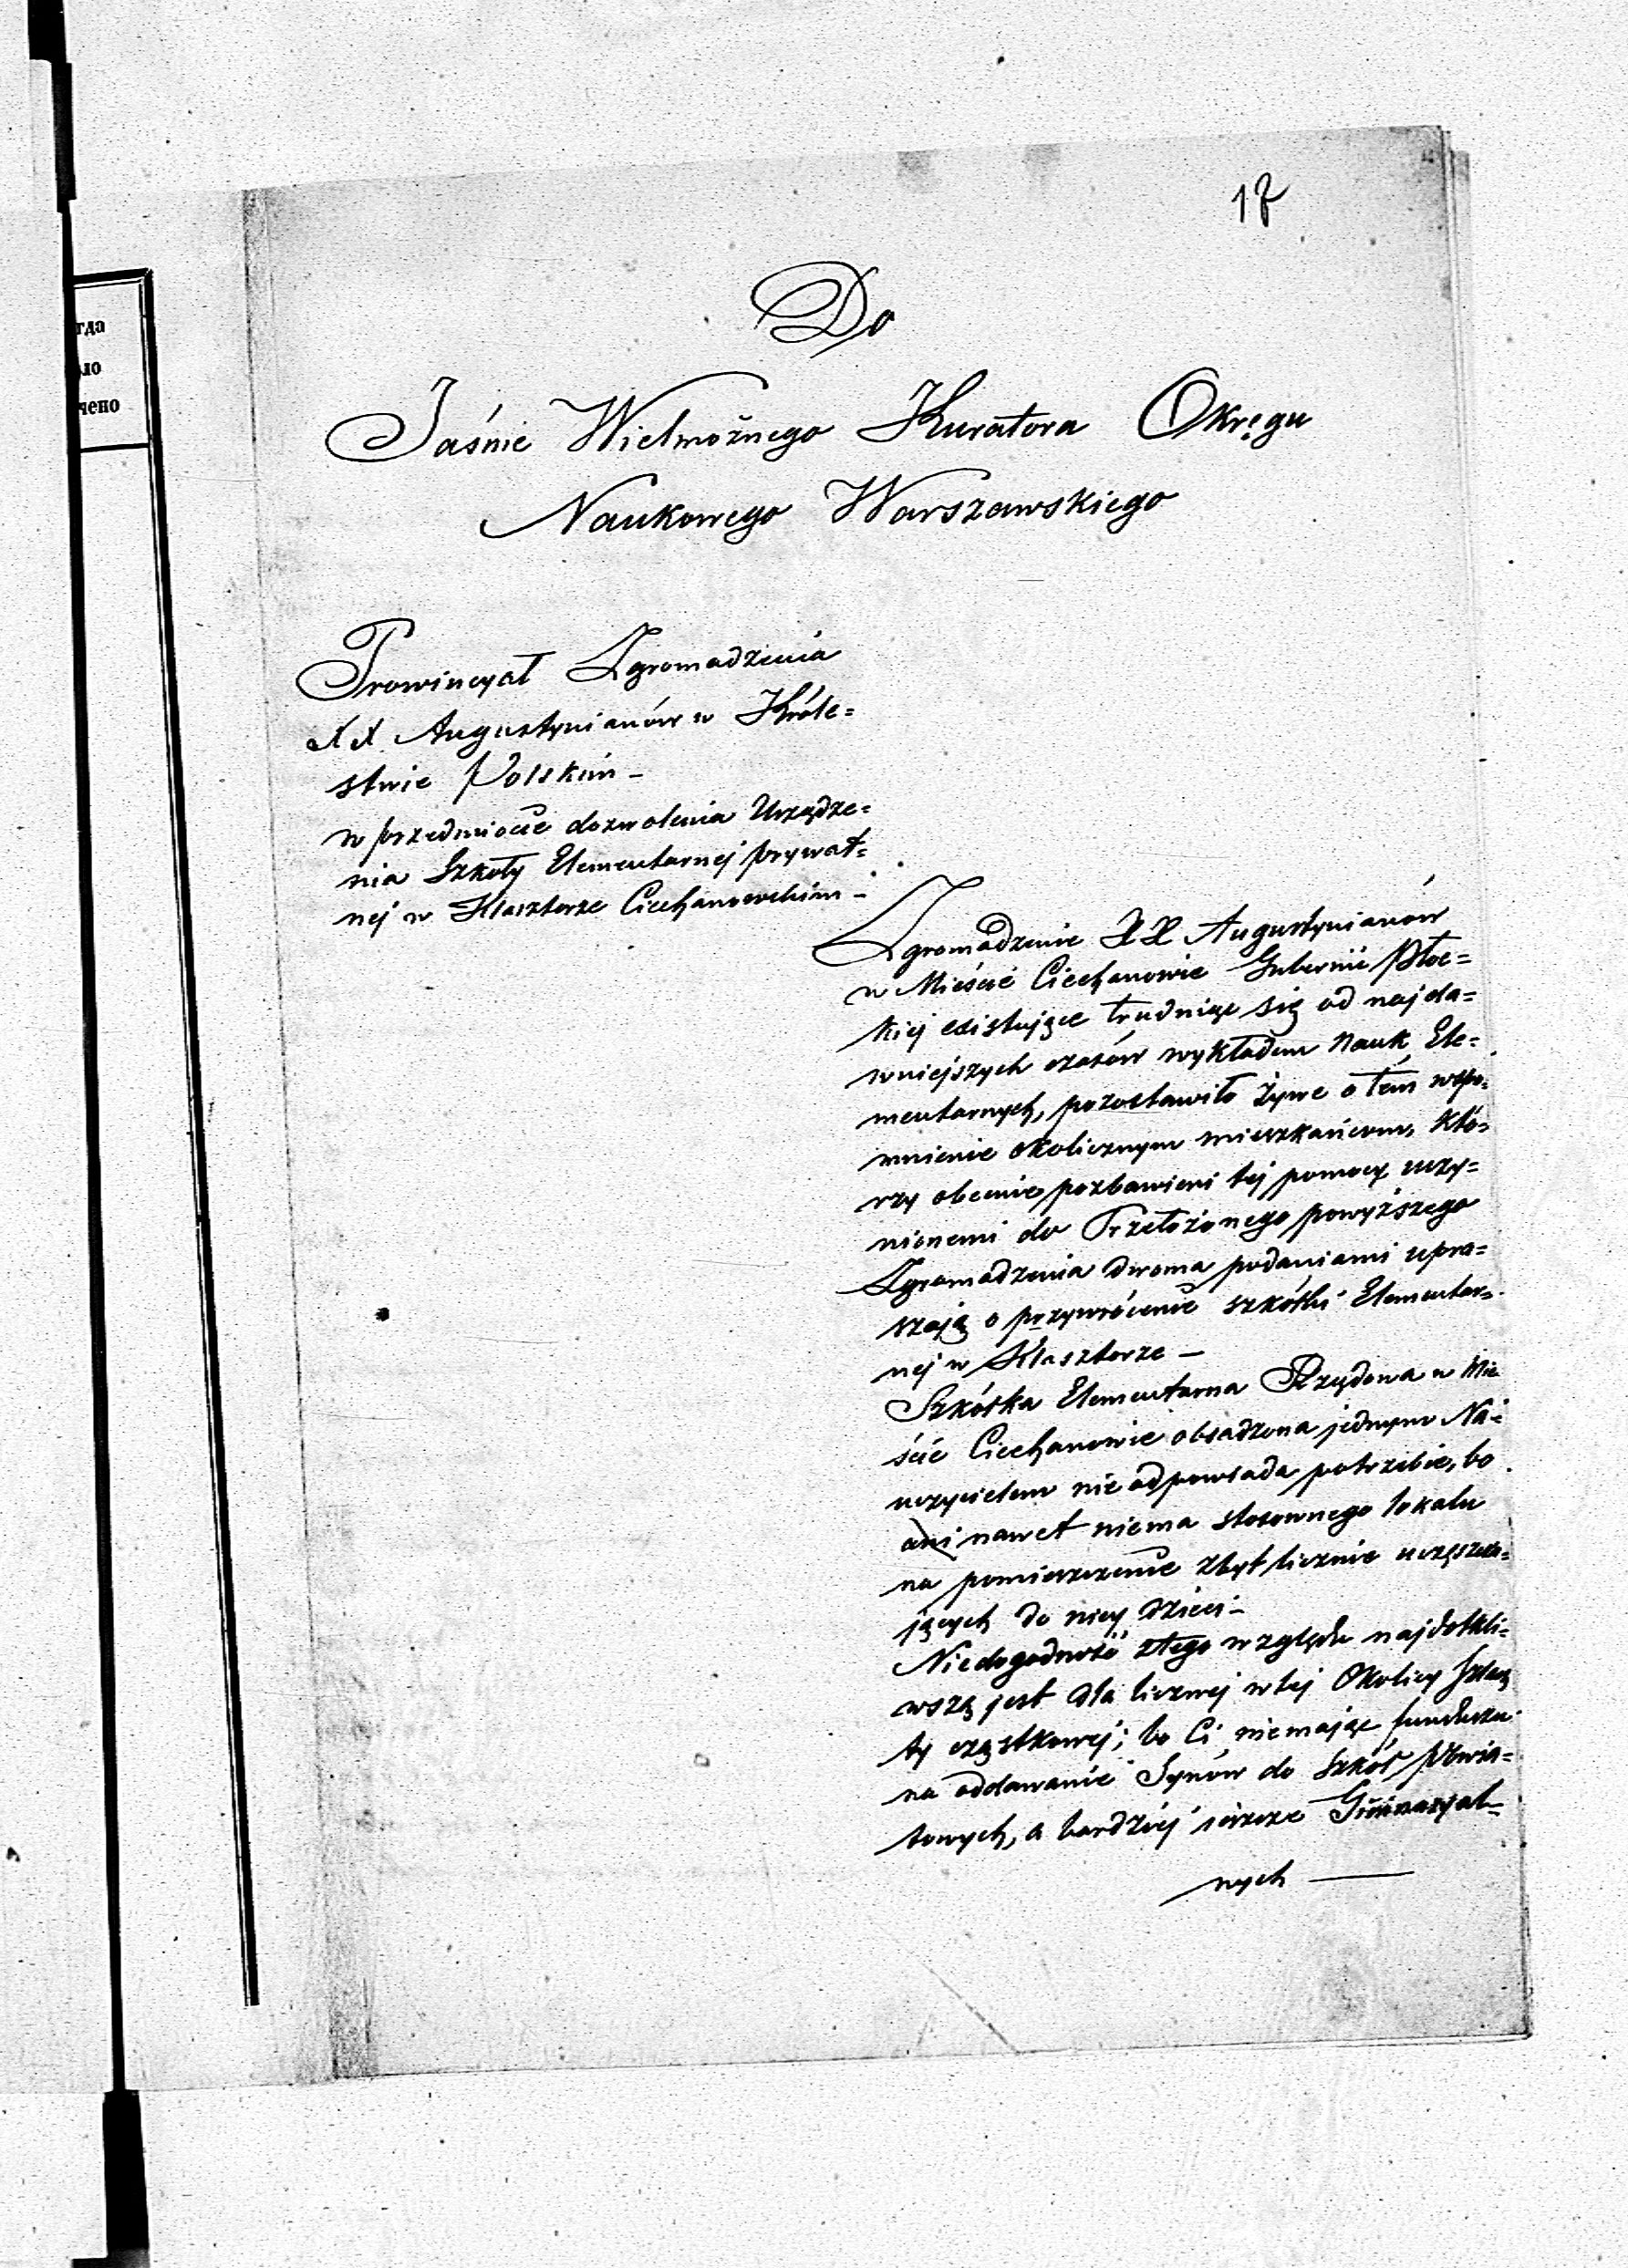 17
гда
ло
чено
Do
Jaśnie Wielmożnego Kuratora Okręgu
Naukowego Warszawskiego
Prowincyał Zgromadzenia
XX. Augustynianów w Króle=
stwie Polskim –
w przedmiocie dozwolenia Urządze=
nia Szkoły Elementarnej prywat=
nej w Klasztorze Ciechanowskim –
Zgromadzenie XX Augustynianów
w Mieście Ciechanowie Gubernii Płoc=
kiej existujące trudniąc się od najda=
wniejszych czasów wykładem Nauk Ele=
mentarnych, pozostawiło żywe o tém wspo=
mnienie okolicznym mieszkańcom, któ=
rzy obecnie pozbawieni tej pomocy uczy=
nionemi do Przełożonego powyższego
Zgromadzenia dwoma podaniami upra=
szają o przywrócenie szkółki Elementar=
nej w Klasztorze –
Szkółka Elementarna Rządowa w Mie
ście Ciechanowie obsadzona jednym Na=
uczycielem nie odpowiada potrzebie, bo
ani nawet niema stosownego lokalu
na pomieszczenie zbyt licznie uczęszcza=
jących do niey dzieci –
Niedogodność z tego względu najdotkli=
wszą jest dla licznej w tej Okolicy Szlach
ty cząstkowej; bo Ci niemając funduszu
na oddawanie Synów do Szkół Powia=
towych, a bardziej jeszcze Gimnazyal=
nych —